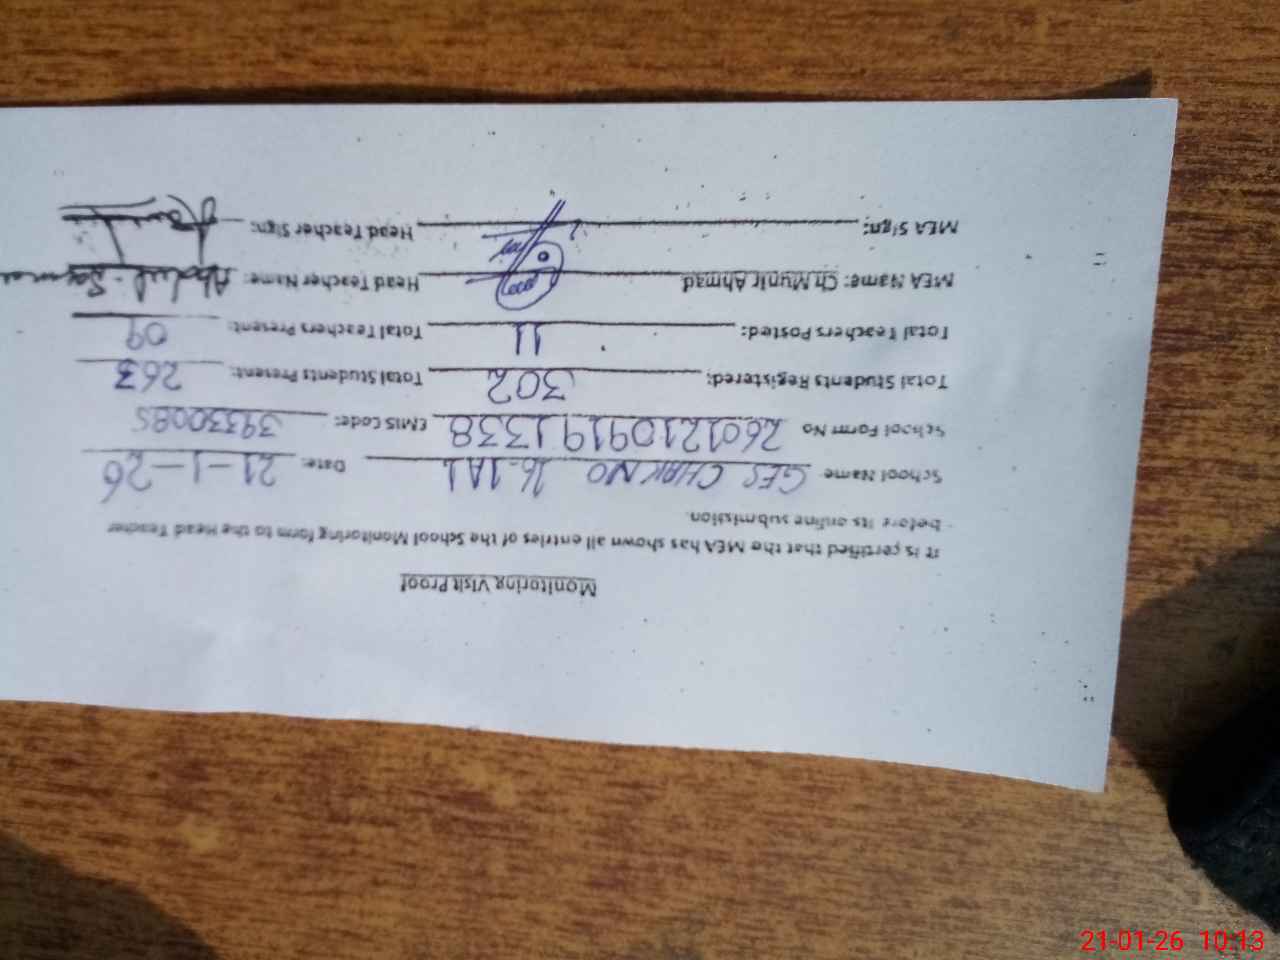 Monitoring Visit Proof
It is certified that the MEA has shown all entries of the School Monitoring form to the Head Teacher
before its online submission.
School Name GES CHAK NO 16-1AL Date: 21-1-26
School Form No 2601210919 1338 EMIS Code: 39330085
Total Students Registered: 302 Total Students Present: 263
Total Teachers Posted: 11 Total Teachers Present: 09
MEA Name: Ch Munir Ahmad Head Teacher Name: Abdul
MEA Sign: Head Teacher Sign:
21-01-26 10:13